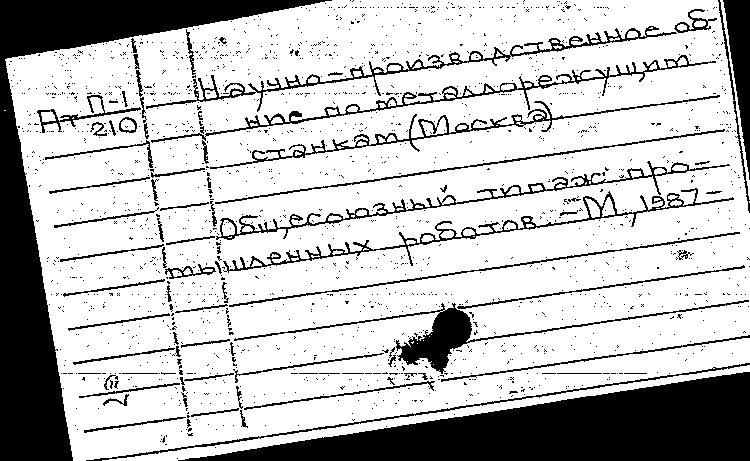 Ат П-1
210
Научно-производственное об-
ние по металлорежущим
станкам (Москва)
Общесоюзный типаж про-
мышленных роботов. - М., 1987-